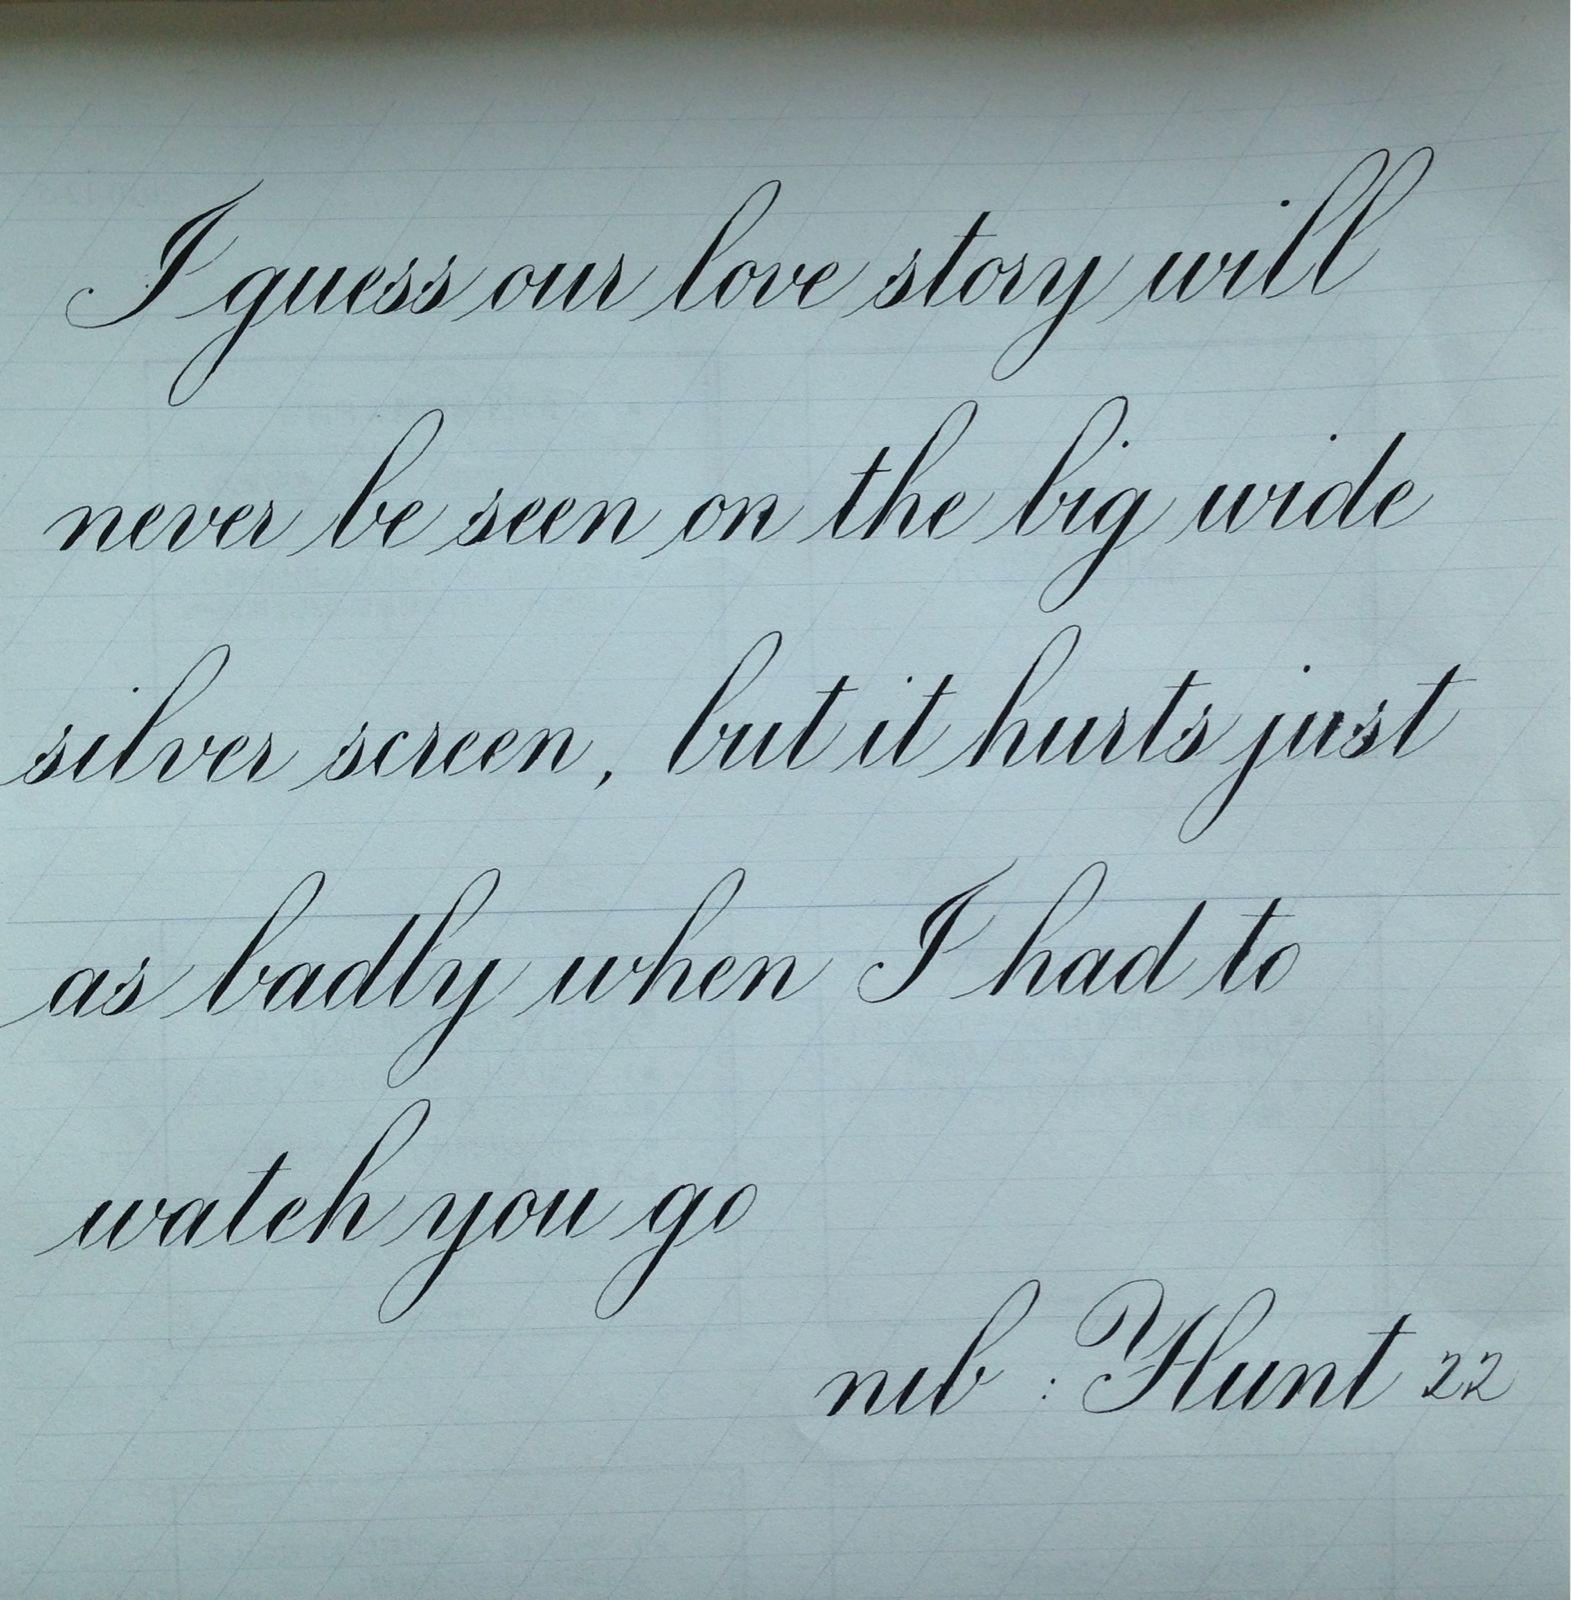 I guess our love story will
never be seen on the big wide
silver screen, but it hurts just
as badly when I had to
watch you go
nib : Hunt 22